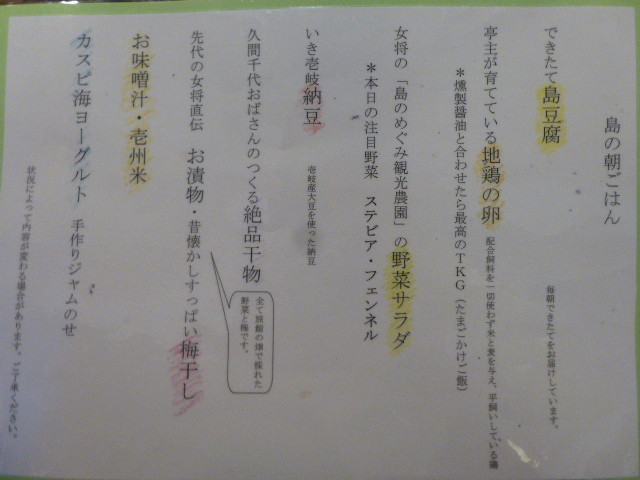 島の朝ごはん
できたて島豆腐 毎朝できたてをお届けしています。
亭主が育てている地鶏の卵 配合飼料を一切使わず米と麦を与え、平飼いしている鶏
＊燻製醤油と合わせたら最高のTKG（たまごかけご飯）
女将の「島のめぐみ観光農園」の野菜サラダ
＊本日の注目野菜 ステビア・フェンネル
いき壱岐納豆 壱岐産大豆を使った納豆
久間千代おばさんのつくる絶品干物
先代の女将直伝 お漬物・昔懐かしすっぱい梅干し
全て旅館の畑で採れた
野菜と梅です。
お味噌汁・壱州米
カスピ海ヨーグルト 手作りジャムのせ
状況によって内容が変わる場合があります。ご了承ください。